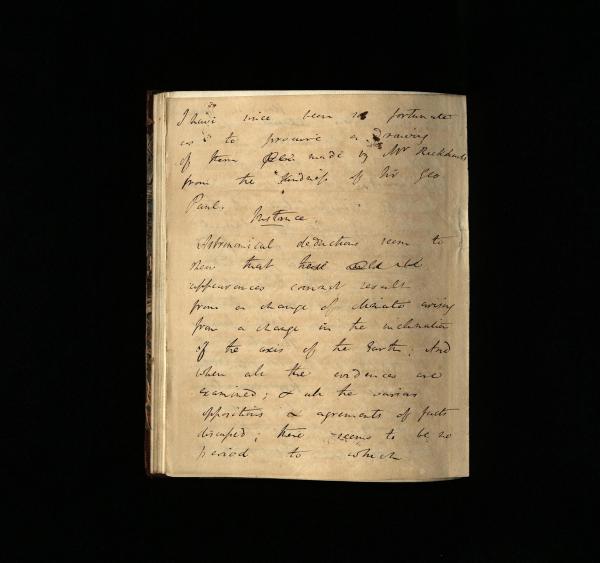 I have since been so fortunate
as to procure a Drawing
of them made by Mr Rickhards
from the Kindness of Sir Geo
Paul.
Instance.
Astronomical deductions seem to
shew that
appearances cannot result
from a change of climate arising
from a change in the inclination
of the axis of the Earth; And
when all the evidences are
examined; & all the various
oppositions & agrements of facts
discussed; there seems to be no
period to which